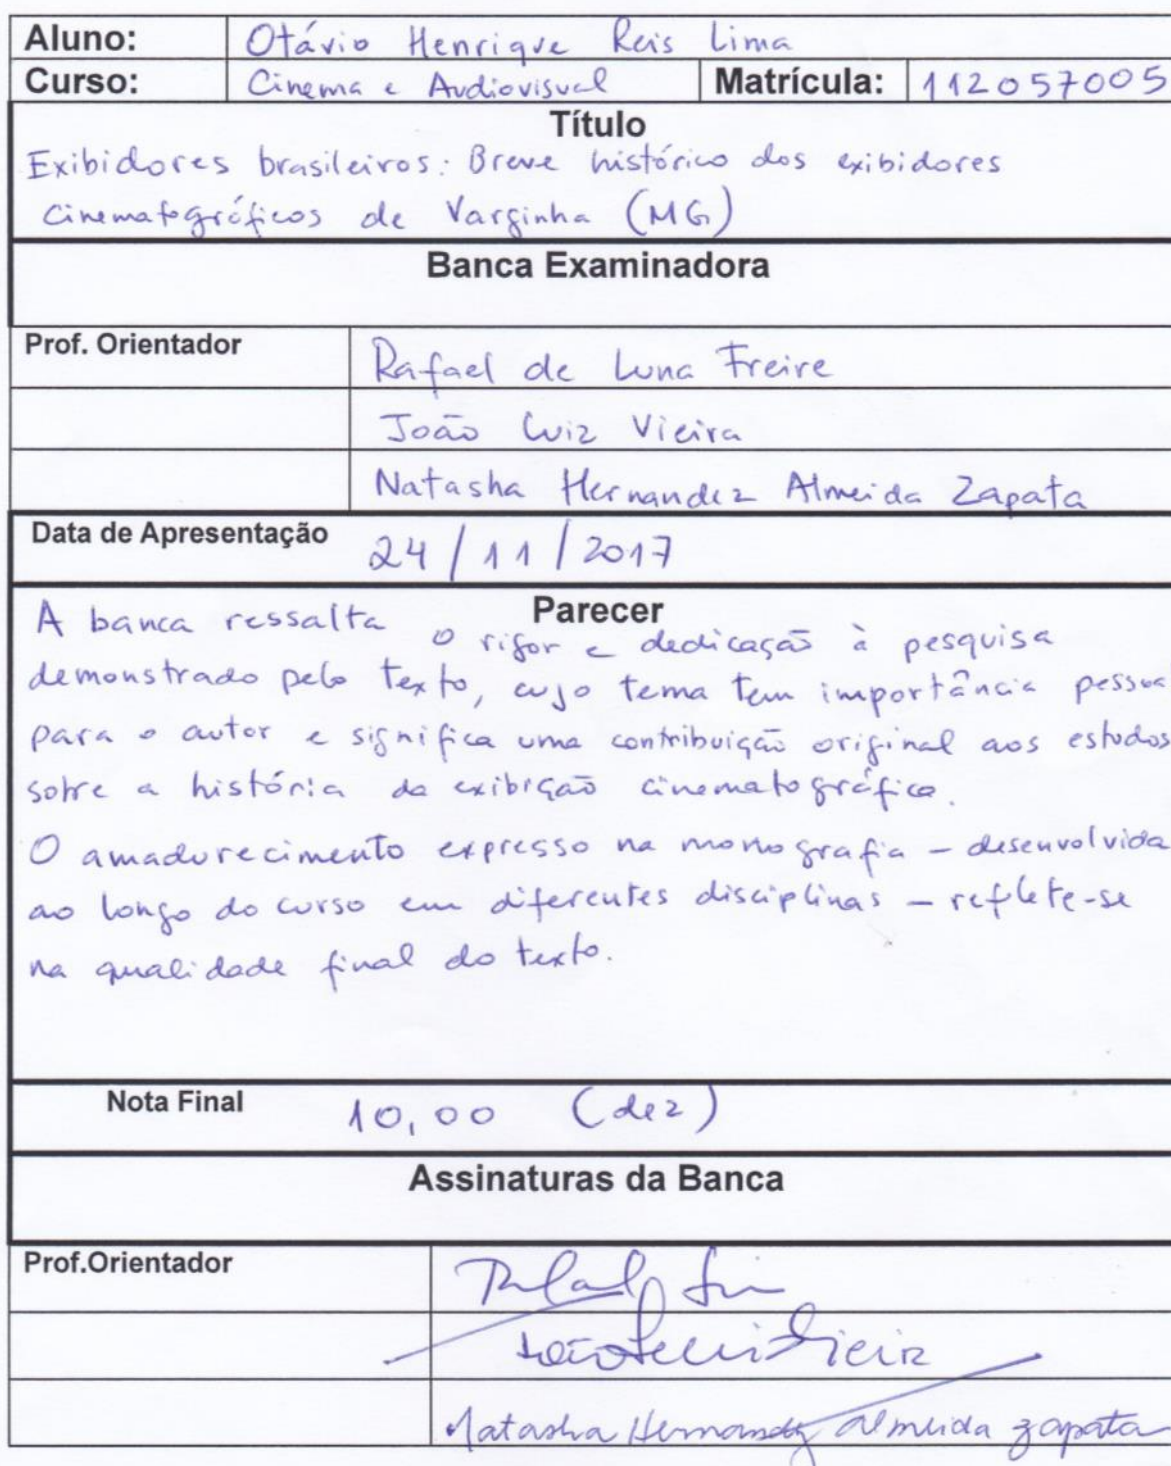 Aluno: Otávio Henrique Reis Lima
Curso: Cinema e Audiovisual Matrícula: 112057005
Título
Exibidores brasileiros: Breve histórico dos exibidores
cinematográficos de Varginha (MG)
Banca Examinadora
Prof. Orientador Rafael de Luna Freire
João Luiz Vieira
Natasha Hernandez Almeida Zapata
Data de Apresentação 24/11/2017
Parecer
A banca ressalta o rigor e dedicação à pesquisa
demonstrado pelo texto, cujo tema tem importância pessoa
para o autor e significa uma contribuição original aos estudos
sobre a história da exibição cinematográfica.
O amadurecimento expresso na monografia – desenvolvida
ao longo do curso em diferentes disciplinas – reflete-se
na qualidade final do texto.
Nota Final 10,00 (dez)
Assinaturas da Banca
Prof.Orientador
João Luiz Vieira
Natasha Hernandez Almeida Zapata